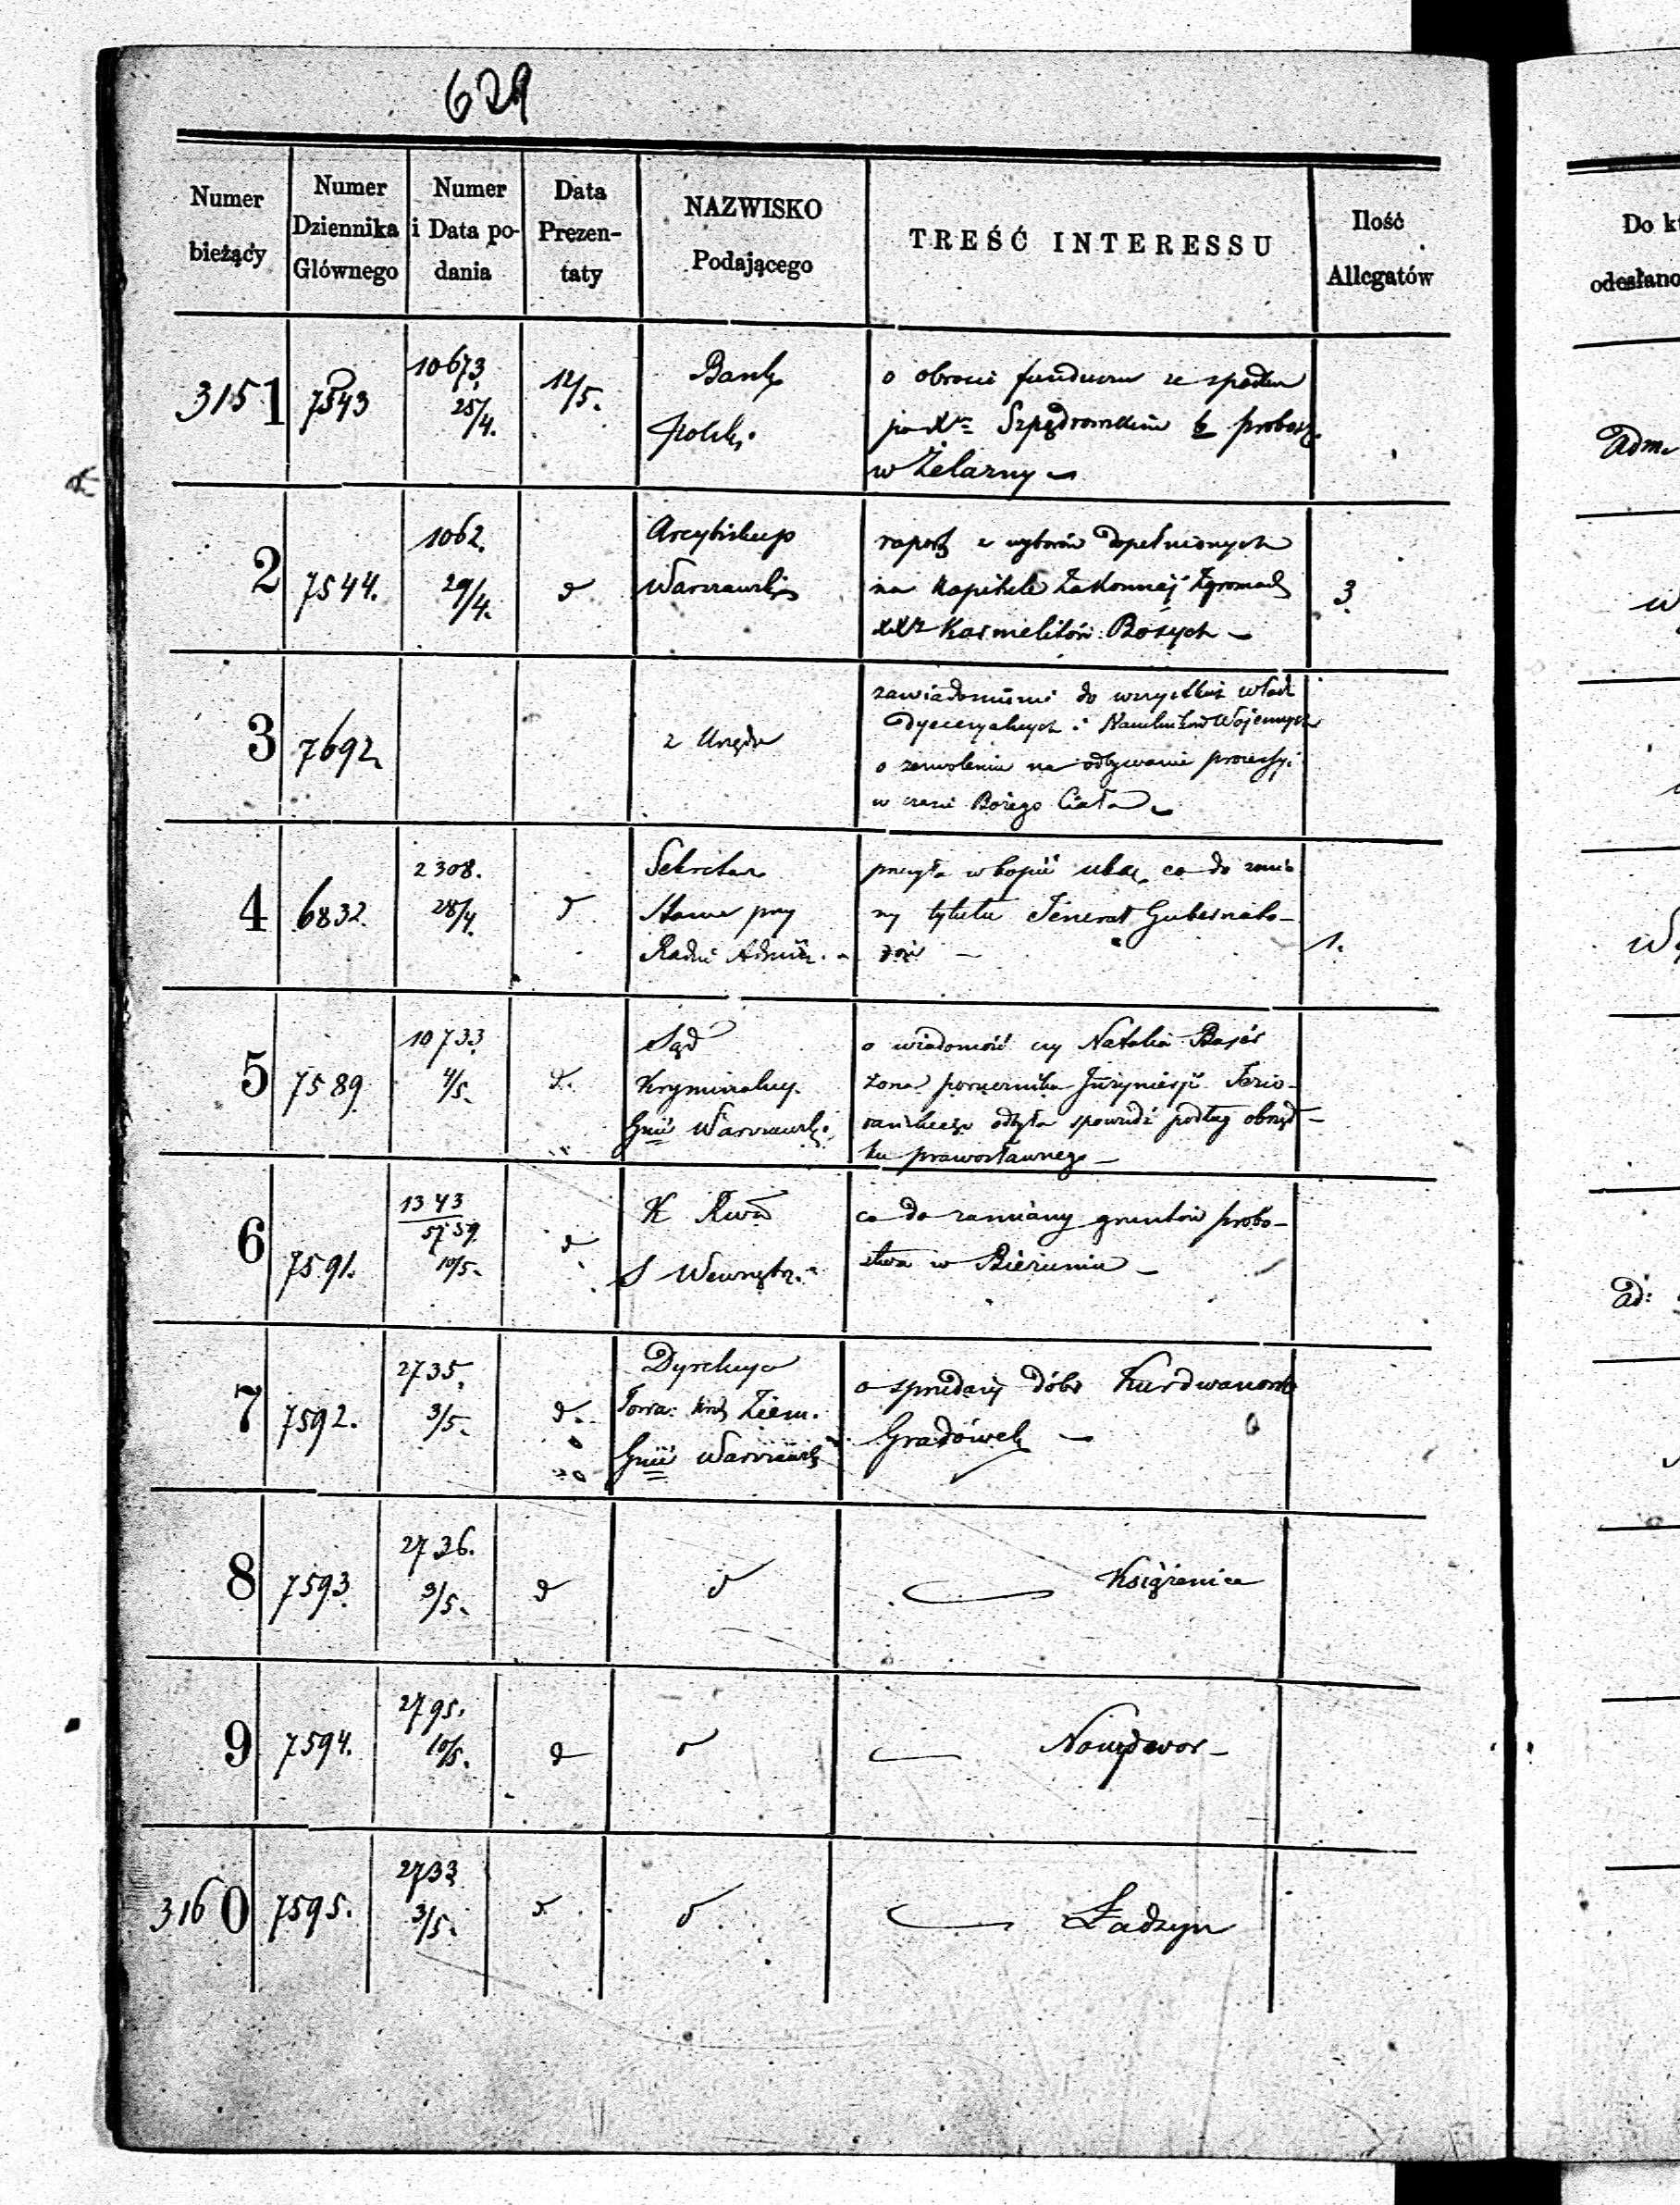 629
Numer bieżący
Numer Dziennika Głównego
Numer i Data podania
Data Prezentaty
NAZWISKO Podającego
TREŚĆ INTERESSU
Ilość Allegatów
Do k
odesłano
3151
7543
10673.
25/4.
12/5.
Bank
Polski.
o obrocie funduszu ze spadku
po Xr=
probosz.
w Żelazny
Adm.
2
7544.
1062.
29/4.
d
Arcybiskup
Warszawski
raport z wyborów dopełnionych
na Kapitule Zakonnej Zgromadz
XXr Karmelitów Bosych –
3.
3
7692
z Urzędu
zawiadomienie do wszystkich władz
Dyecezyalnych i Naczelników Wojennych
o zezwoleniu na odbywanie processyi
w czasie Bożego Ciała
4
6832.
2308.
28/4.
d
Sekretarz
Stanu przy
Radzie Admin.
przesyła w kopii ukaz co do zmia
ny tytułu Jenerał Gubernato–
rów –
1.
5
7589.
10733.
4/5.
d.
Sąd
Kryminalny
Gnii Warszawsk.
o wiadomość czy Natalia
żona porucznika Inżynierji
odbyła spowiedź podług obrząd–
ku prawosławnego –
6
7591.
1343
5759.
10/5.
d
K Rzą
S Wewnętrz.
co do zamiany gruntów probo–
stwa w Bieruniu –
Ad:
7
7592.
2735.
3/5.
d.
Dyrekcya
Towa: Kred Ziem.
Gnii Warszawsk
o sprzedaży dóbr Kurdwanów
Gradówek –
8
7593.
2736.
3/5.
d
d
Książenice
9
7594.
2795.
10/5.
d
d
Nowydwor –
3160
7595.
2733
3/5.
d.
d.
Ładzyn